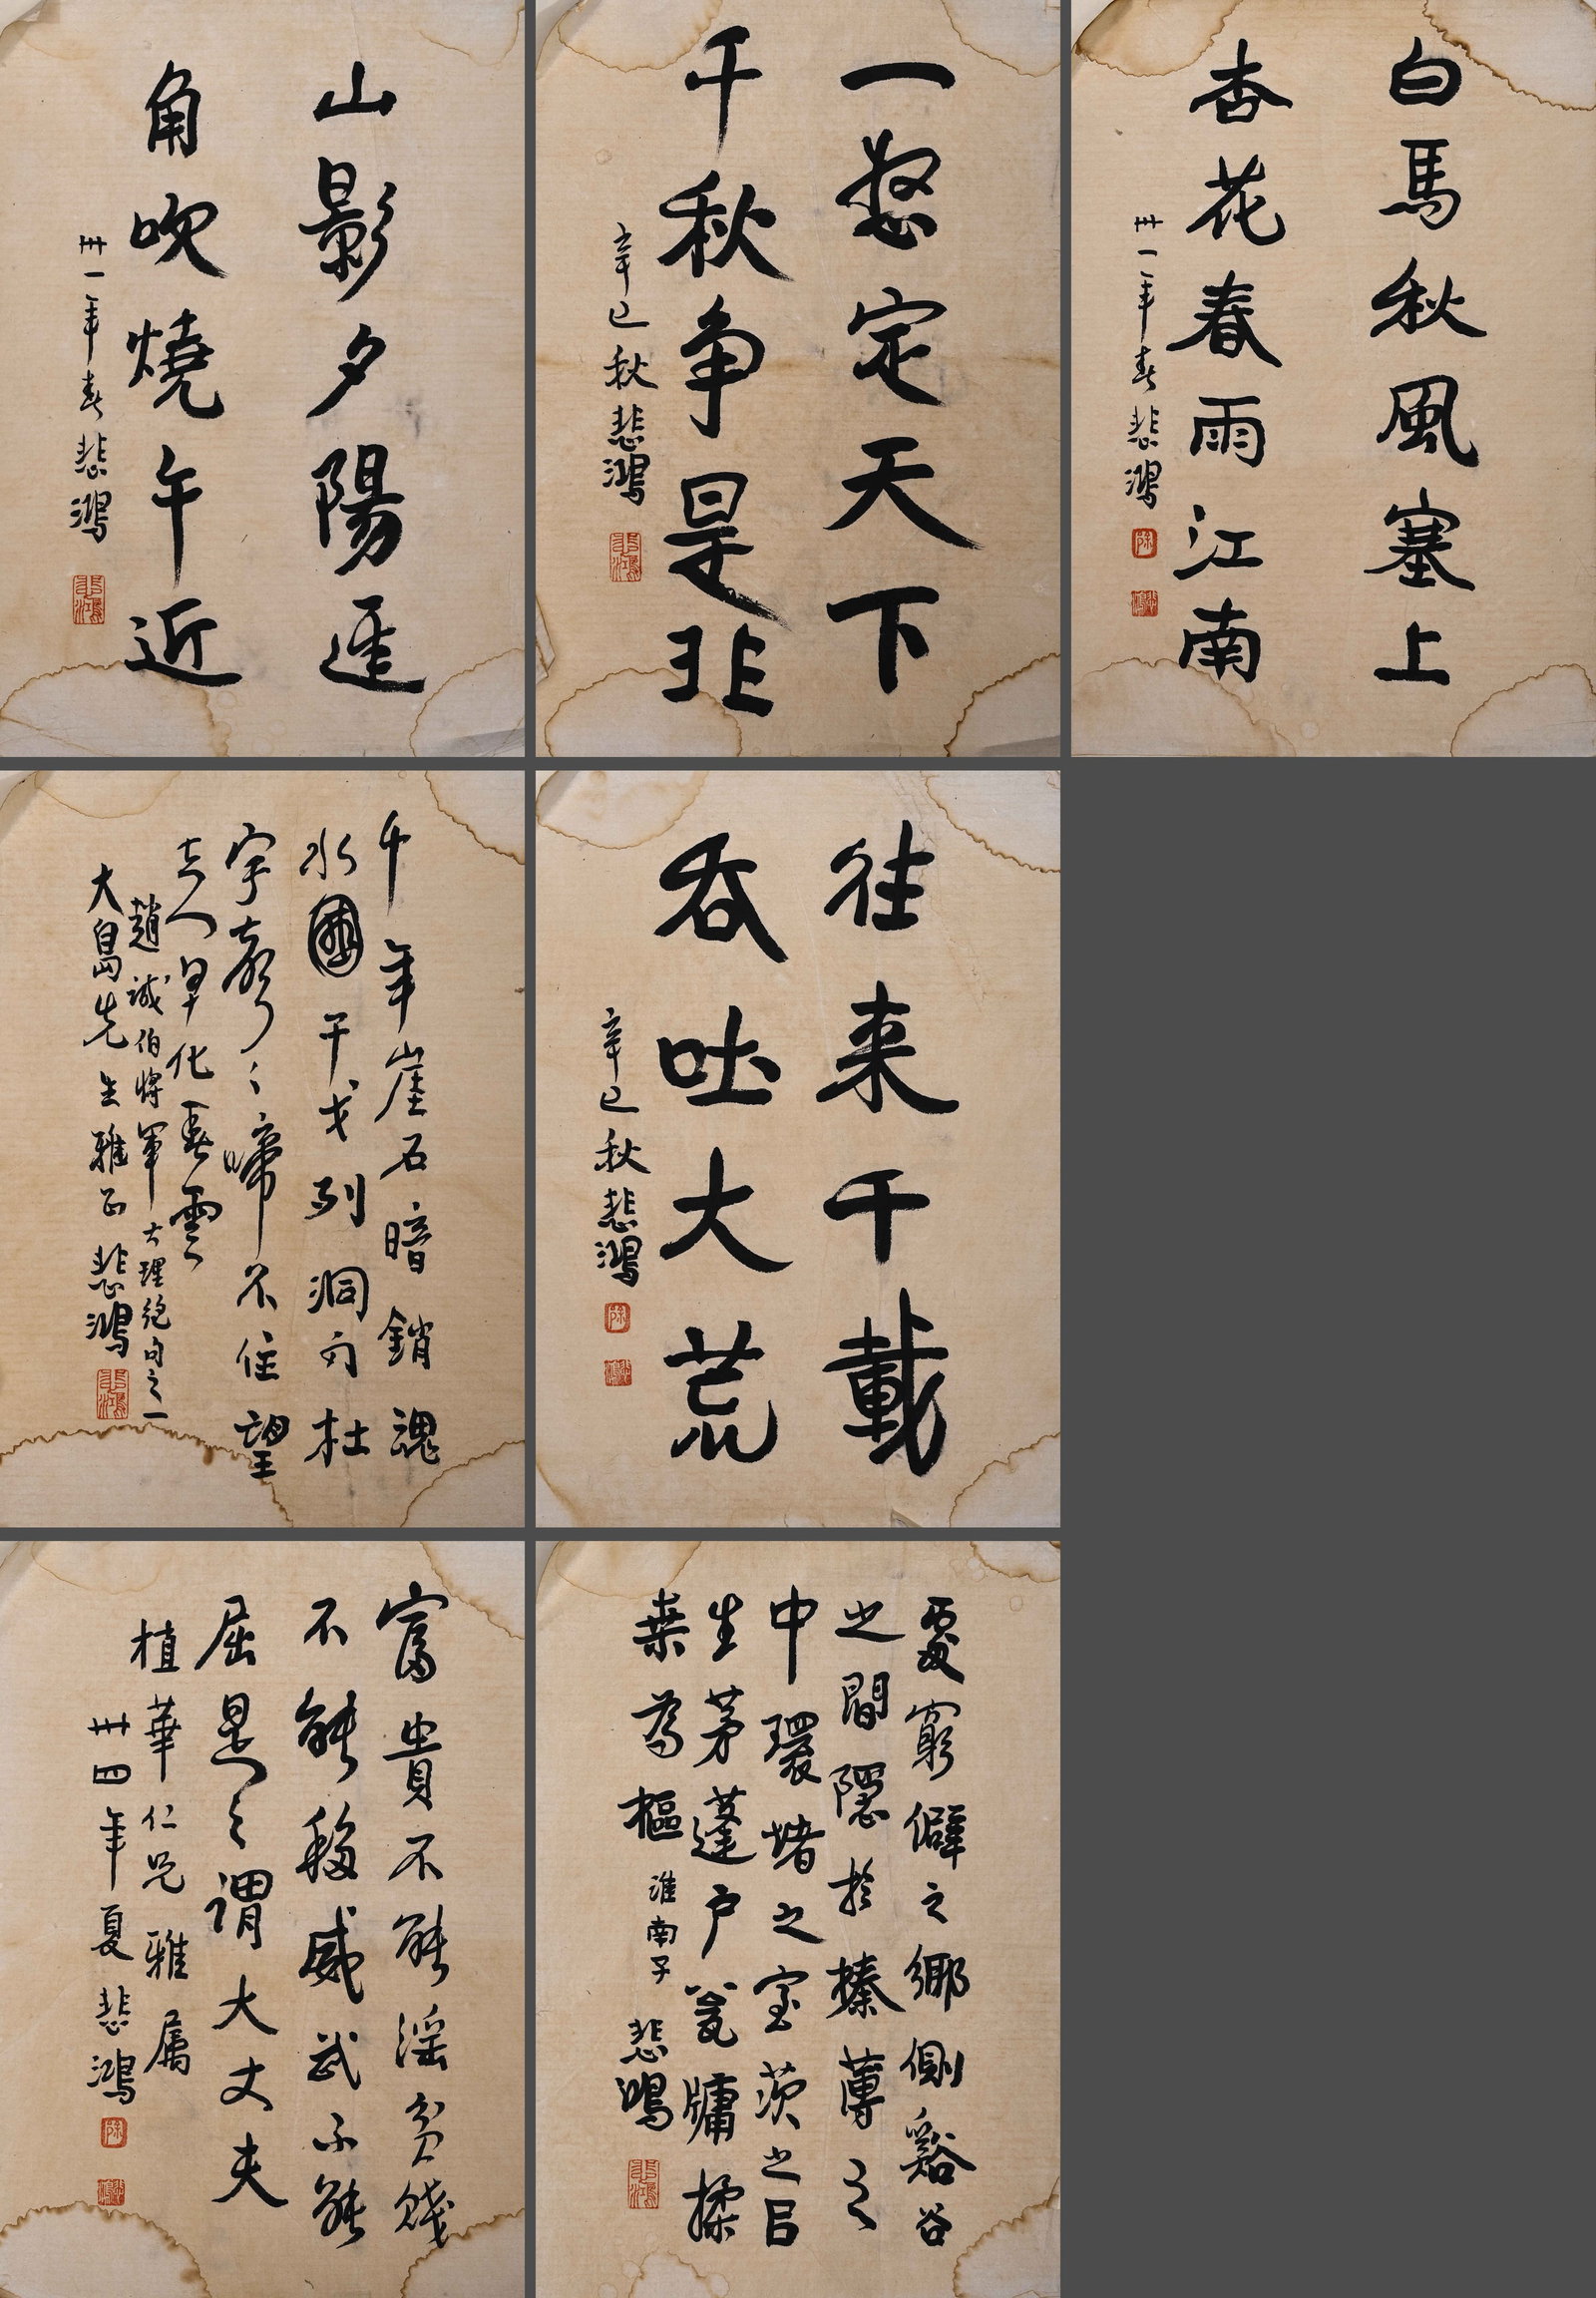 山影夕陽遲
角吹燒午近
卅一年春悲鴻
悲鴻
一怒定天下
千秋争是非
辛巳秋悲鴻
悲鴻
白馬秋風塞上
杏花春雨江南
卅一年春悲鴻
徐
千年崖石暗銷魂
水國干戈列洞勾杜
宇聲〻啼不住望
夫人早化
雲
趙誠伯將軍大理絕句之一
大島先生雅正悲鴻
悲鴻
往來千載
吞吐大荒
辛巳秋悲鴻
徐
富貴不能淫貧賤
不能移威武不能
屈是之謂大丈夫
植華仁兄雅屬
卅四年夏悲鴻
徐
處窮僻之鄉側谿谷
之間隱於榛薄之
中環堵之室茨之㠯
生茅蓬户瓮牖揉
桑為樞
淮南子
悲鴻
悲鴻